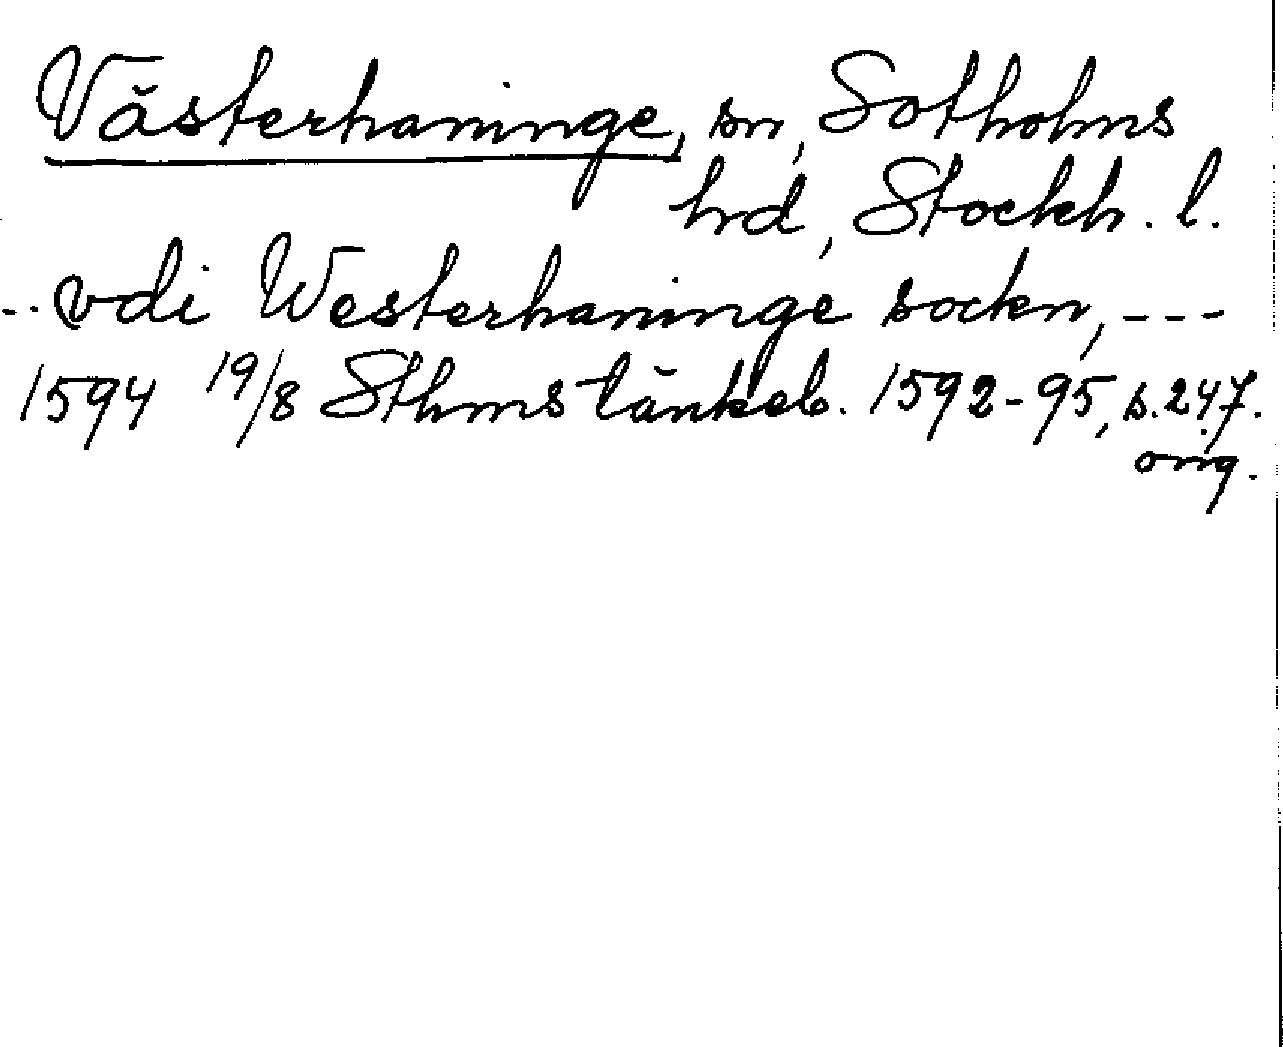 Västerhaninge, sn, Sotholms
hrd, Stockh. l.
.. vdi Westerhaninge sockn, ---
1594 19/8 Sthms tänkeb. 1592-95, s. 247.
orig.